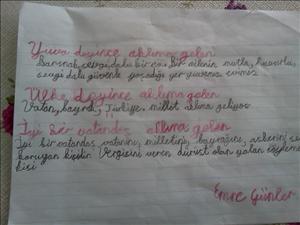 Yuva deyince aklıma gelen
Barınak, sevgi dolu bir ev. Bir ailenin mutlu, huzurlu,
sevgi dolu güvenle yaşadığı yer yuvamız evimiz
Ülke deyince aklıma gelen
Vatan, bayrak, Türkiye, millet aklıma geliyor
İyi bir vatandaş aklıma gelen
İyi bir vatandaş vatanını, milletini, bayrağını, askerini
koruyan kişidir. Vergisini veren, dürüst olan yalan söylemeyen
kişi
Emre Günler